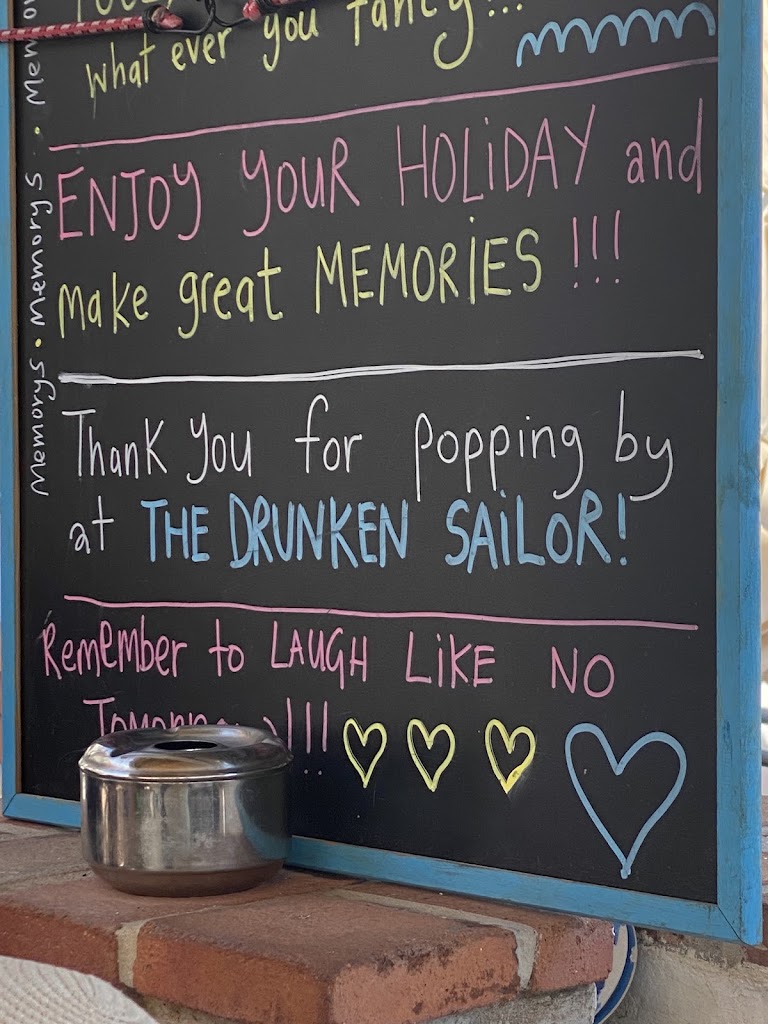 what ever you fancy!!!
ENJOY YOUR HOLIDAY and
make great MEMORIES !!!
Thank you for popping by
at THE DRUNKEN SAILOR!
Remember to LAUGH LIKE NO
Tomorrow!!!
Memorys • Memorys • Memorys